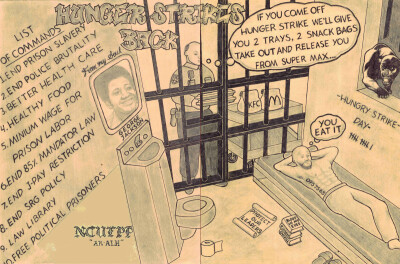 HUNGER STRIKES
BACK
LIST
OF COMMANDS
1. END PRISON SLAVERY
2. END POLICE BRUTALITY
3. BETTER HEALTH CARE
4. HEALTHY FOOD
5. MINIUM WAGE FOR
PRISON LABOR
6. END 85% MANDATOR LAW
7. END J-PAY RESTRICTION
8. END SRG POLICY
9. LAW LIBRARY
10. FREE POLITICAL PRISONERS
GEORGE
IF YOU COME OFF
HUNGER STRIKE WE'LL GIVE
YOU 2 TRAYS, 2 SNACK BAGS
TAKE OUT AND RELEASE YOU
FROM SUPER MAX....
KFC
M
-HUNGRY STRIKE-
DAY-
YOU
EAT IT
PROTECT
OUR
LEADERS